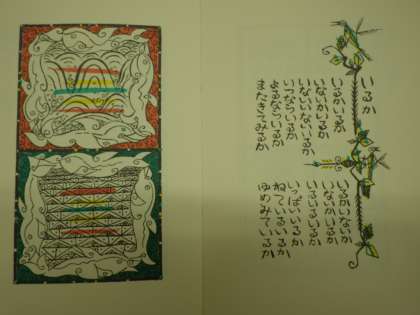 いるか
いるかいるか
いないかいるか
いないいないいるか
いつならいるか
よるならいるか
またきてみるか
いるかいないか
いないかいるか
いるいるいるか
いっぱいいるか
ねているいるか
ゆめみているか